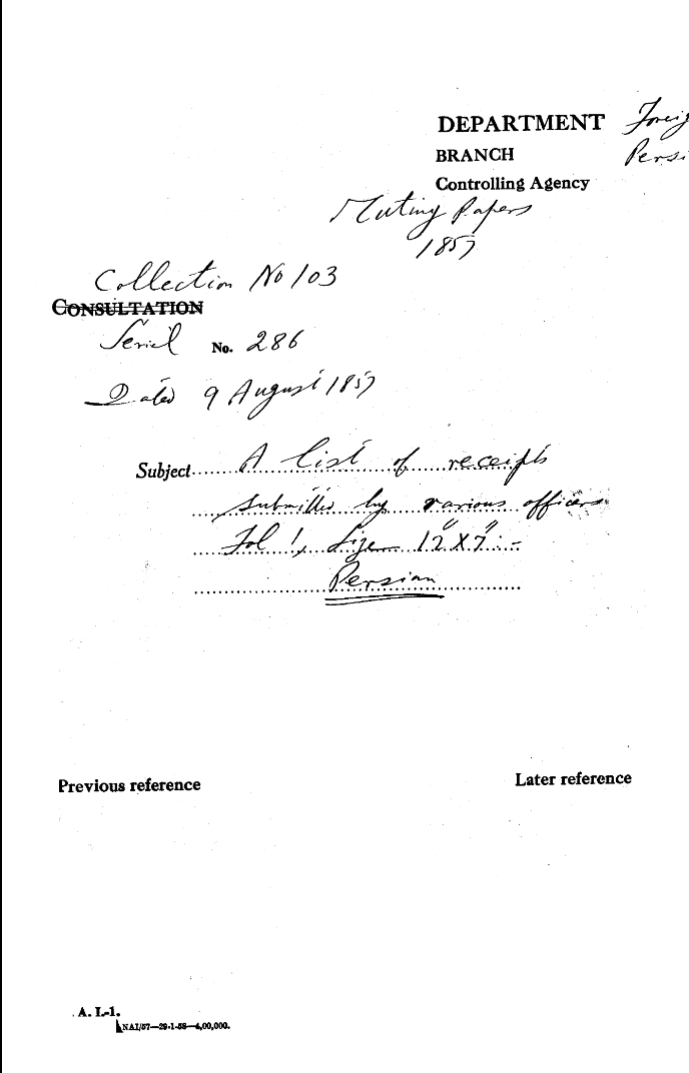 DEPARTMENT Foreig
BRANCH Persi
Controlling Agency
Mutiny Papers
1857
Collection No 103
CONSULTATION
Serial No. 286
Dated 9 August 1857
Subject A list of receipts
submitted by various officers
Fol 1, Size 12" X 7" :-
Persian
Previous reference
Later reference
A. I.-1.
NAI/57—29-1-58—4,00,000.